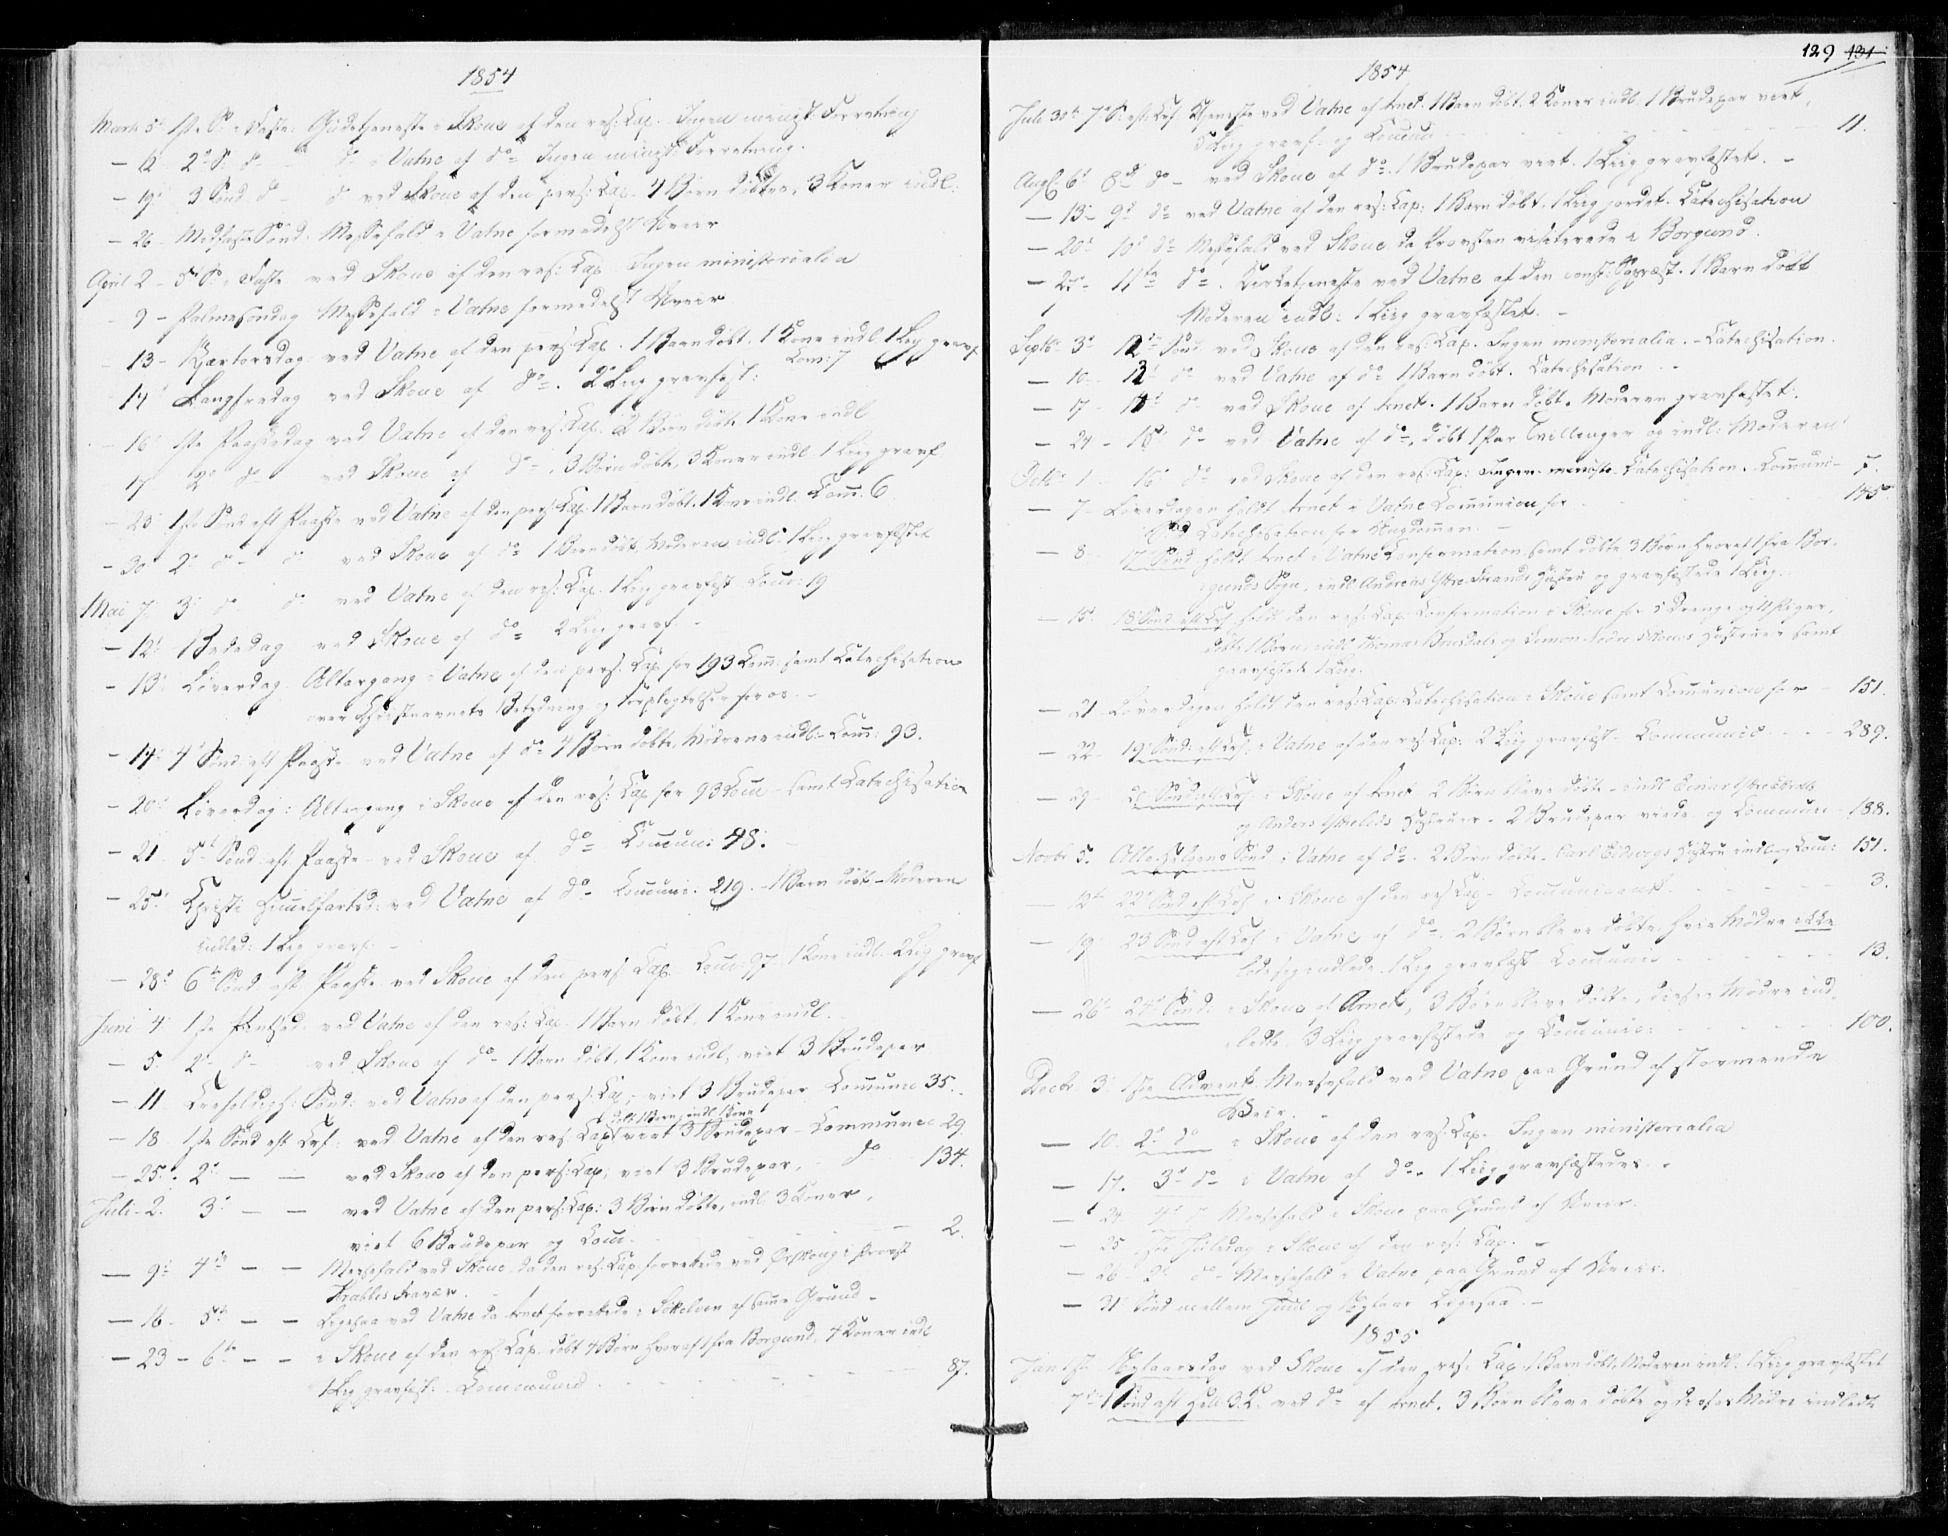 1854
Marts 5. 1ste S. i Faste. Gudstjeneste i Skoue af den res: Cap. Ingen minist. Forretning
— 12 2d S. d — d i Vatne af do Ingen minist: Forretning.
— 19 3 Sønd. d — d ved Skoue af den pers: Cap. 4 Børn døbte, 3 Koner indl:
— 26 — Midfaste Sønd. Messefald i Vatne formedelst Uveir
April 2 — 5te S. i Faste ved Skoue af den res: Cap Ingen ministerialia
9 — Palmesøndag Messefald i Vatne formedelst Uveir
13 — Skjærtorsdag ved Vatne af den pers: Cap. 1 Barn døbt, 1 Kone indl 1 Lig gravf
Com: 7
14 Langfredag ved Skoue af do. 2 Lig gravfæst:
16 1ste Paaskedag ved Vatne af den res: Cap. 2 Børn døbt 1 Kone indl
17 2d d — ved Skoue af do, 3 Børn døbte, 3 Koner indl 1 Lig gravf.
— 23 1ste Sønd eft Paaske ved Vatne af den pers: Cap. 1 Barn døbt. 1 Kone indl. Com. 6
— 30 2 d — d ved Skoue af do 1 Barn døbt, Moderen indl: 1 Lig gravfæstet
Mai 7. 3 d — d ved Vatne af den res: Cap. 1 Lig gravfæst Com: 19
— 12 Bededag ved Skoue af do 2 Lig gravf. —
— 13 Løverdag Altergang i Vatne af den pers: Cap for 193 Com: samt Catechisation
over Christnavnets Betydning og Forpligtelser for os. —
— 14 4 Sønd: eft Paaske ved Vatne af do 4 Børn døbte, Mødrene indl: — Com: 93.
— 20 Løverdag: Altergang i Skoue af den res: Cap for 93 Com — samt Catechisation
— 21 5te Sønd. eft Paaske — ved Skoue af do Commun: 48.
— 25 Christi Himmelfartsd: ved Vatne af do Communi: 219. — 1 Barn døbt — Moderen
indled: 1 Lig gravf: —
— 28 6te Sønd eft Paaske ved Skoue af den pers: Cap. Com: 97 1 Kone indl. 2 Lig gravf
Juni 4 1ste Pintsed: ved Vatne af den res: Cap. 1 Barn døbt, 1 Kone indl.
— 5. 2 d — ved Skoue af do 1 Barn døbt, 1 Kone indl, viet 3 Brudepar
— 11 Trefoldigh: Sønd: ved Vatne af den pers: Cap, viet 3 Brudepar Commune 35.
døbt 1 Barn, indl 1 Kone
— 18 1ste Sønd eft Tref: ved Vatne af den res. Cap, viet 3 Brudepar — Communic 29.
— 25. 2 — — ved Skoue af den pers: Cap, viet 3 Brudepar, do 134.
Juli 2. 3 — — ved Vatne af den pers: Cap: 3 Børn døbte, indl 3 Koner,
viet 6 Brudepar og Com. 2.
— 9 4de — — Messefald ved Skoue, da den res. Cap. forrettede ved Ørskoug i Provst
Krabbes Fravær.
— 16 — 5te — — Ligesaa ved Vatne da Amet forrettede i Søkelven af samme Grund —
— 23 — 6te — — i Skoue af den res: Cap. døbt 4 Børn hvoraf 1 fra Borgund, 4 Koner indl
1 Lig gravfæst. Communi 87.
129 131
1854
Juli 30te 7de S: eft: Tref Tjeneste ved Vatne af Amet. 1 Barn døbt. 2 Koner indl. 1 Brudepar viet,
5 Liig gravf. og Commun 11.
Aug: 6te 8de do — ved Skoue af do. 1 Brudepar viet. 1 Liig gravfæstet. —
— 13 — 9d do ved Vatne af den res: Cap: 1 Barn døbt. 1 Liig jordet. Catechisation
— 20 10d do Messefald ved Skoue da Provsten visiterede i Borgund.
— 27 — 11te do. Kirketjeneste ved Vatne af den const: Sogpræst. 1 Barn døbt
Moderen indl: 1 Liig gravfæstet. —
Septb 3 12 Sønd ved Skoue af den res. Cap. Ingen ministerialia. — Catechisation.
— 10 — 13 do ved Vatne af do 1 Barn døbt. Catechisation. —
— 17 — 14 d ved Skoue af Amet. 1 Barn døbt. Moderen gravfæstet.
— 24 — 15 do ved Vatne af do, døbt 1 Par Tvillinger og indl: Moderen
Octb: 1 — 16 do ved Skoue af den res. Cap: Ingen ministr. Catechisation. Communi — 7.
— 7 — Løverdagen holdt Amet i Vatne Communion for 145
og Catechisation for Ungdommen. —
— 8 — 17 Sønd holdt Amet i Vatne Confirmation samt døbte 3 Børn hvoraf 1 fra Bor-
gunds Sogn, indl Andreas Ytre Strands Hustru og gravfæstede 1 Liig.
— 15. 18 Sønd eft Tref. holdt den res: Cap. Confirmation i Skoue for 5 Drenge og 11 Piger,
døbte 1 Barn, indl Thomas og Simon Skoues Hustruer samt
gravfæstede 1 Liig.
— 21 — Løverdagen holdt den res: Cap. Catechisation i Skoue samt Communion for — 151.
— 22 — 19 Sønd: eft Tref. i Vatne af den res Cap: 2 Liig gravfæst — Communic — 289.
— 29 — 20 Sønd eft Tref. i Skoue af Amet 2 Børn bleve døbte — indl Einar
og Anders Hustruer. 2 Brudepar viede og Commun — 188.
Novbr 5. Alle Helgens Sønd. i Vatne af do. 2 Børn døbte. Carl Hustru indl og Com: 151.
— 12 — 22 Sønd eft Tref i Skoue af den res Cap — Communicant — 3.
— 19 23 Sønd eft Tref i Vatne af do. 2 Børn bleve døbte, hvis Mødre ikke
lode sig indlede. 1 Lig gravfæst Communic — 13.
— 26 24 Sønd: i Skoue af Amet, 3 Børn bleve døbte, disses Mødre ind-
ledte, 3 Liig gravfæstede og Communic: 100.
Decbr 3 1ste Advent Messefald ved Vatne paa Grund af stormende
Veir. —
— 10. 2 do i Skoue af den res. Cap. Ingen ministerialia
— 17. 3 do i Vatne af do. 1 Liig gravfæstedes. —
— 24 4 d Messefald i Skoue paa Grund af Uveir.
— 25 1ste Juledag i Skoue af den res. Cap. —
— 26 — 2 do — Messefald i Vatne paa Grund af Uveir.
— 31 Sønd mellem Juul og Nytaar Ligesaa. —
1855
Jan. 1ste Nytaarsdag ved Skoue af den res: Cap. 1 Barn døbt, Moderen indl: 1 Liig gravfæstet
7 — 1 Sønd eft Hell. 3 K. ved do af Amet. 3 Børn bleve døbte og deres Mødre indledte